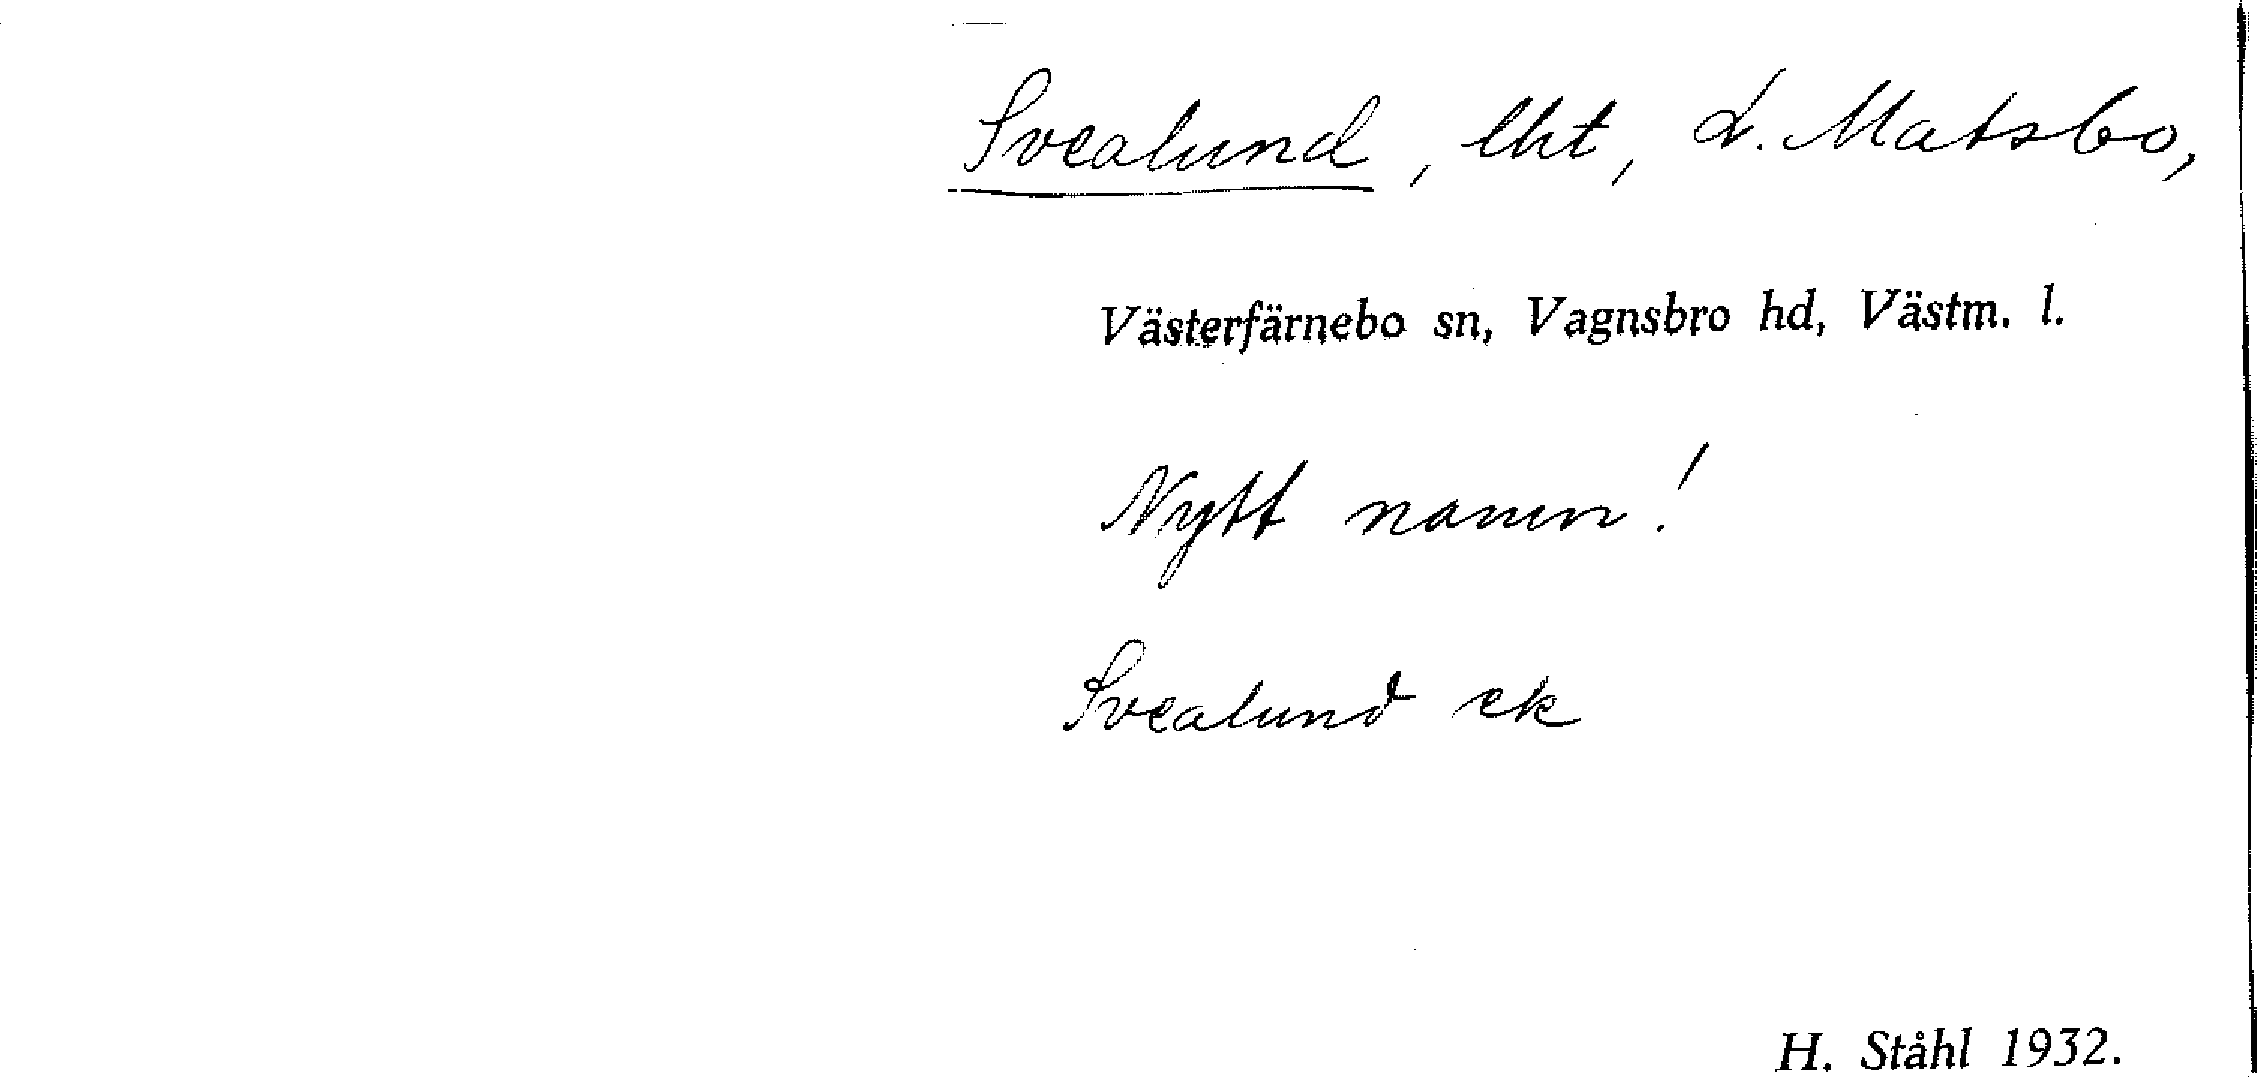 Svealund, lht, L. Matsbo,
Västerfärnebo sn, Vagnsbro hd, Västm. l.
Nytt namn!
Svealund ek
H. Ståhl 1932.